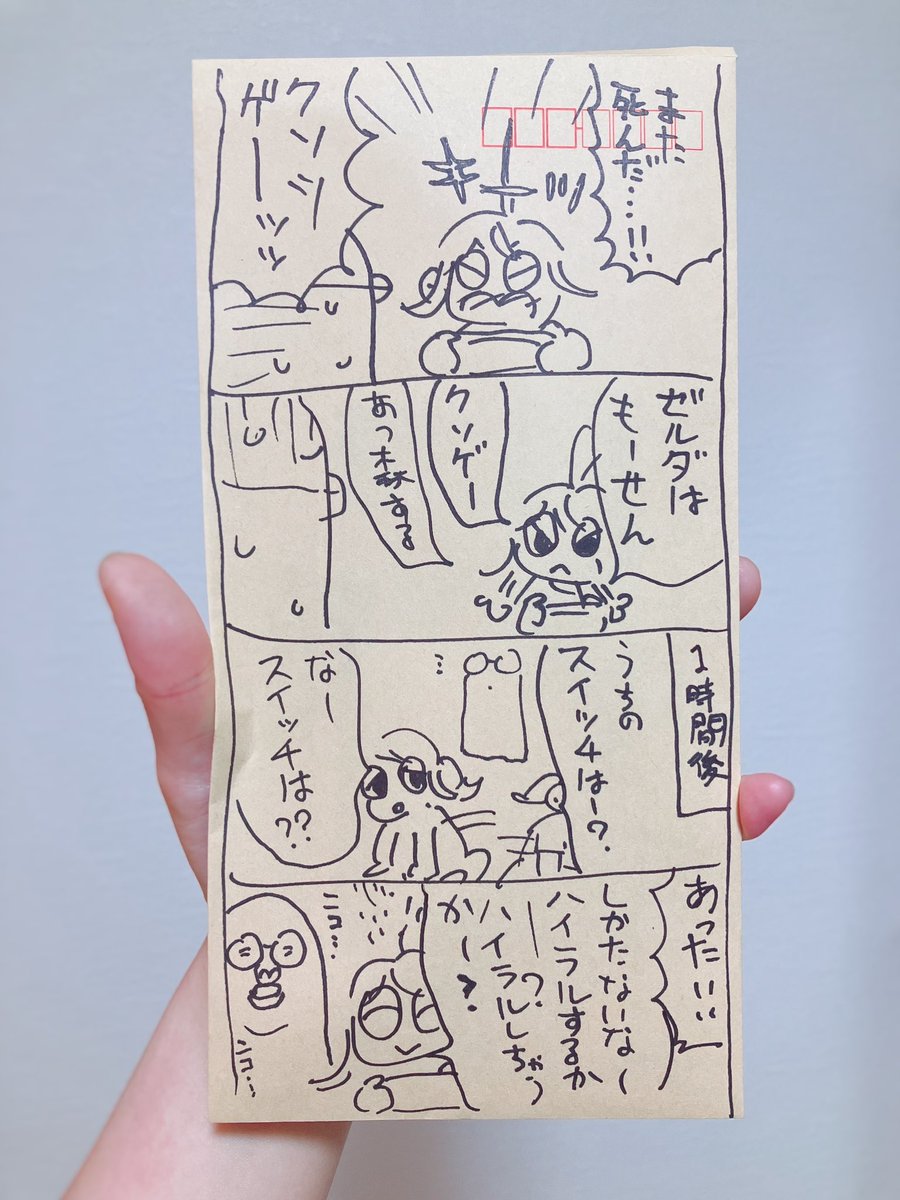 また
死んだ…!!
クソッ
ゲーッッ
ゼルダは
もーせん
クソゲー
あつ森する
1時間後
うちの
スイッチはー?
なー
スイッチは??
あった∥
しかたないなー
ハイラルするか
ー?
ハイラルしちゃう
かー?
ニコ…
ニコ…